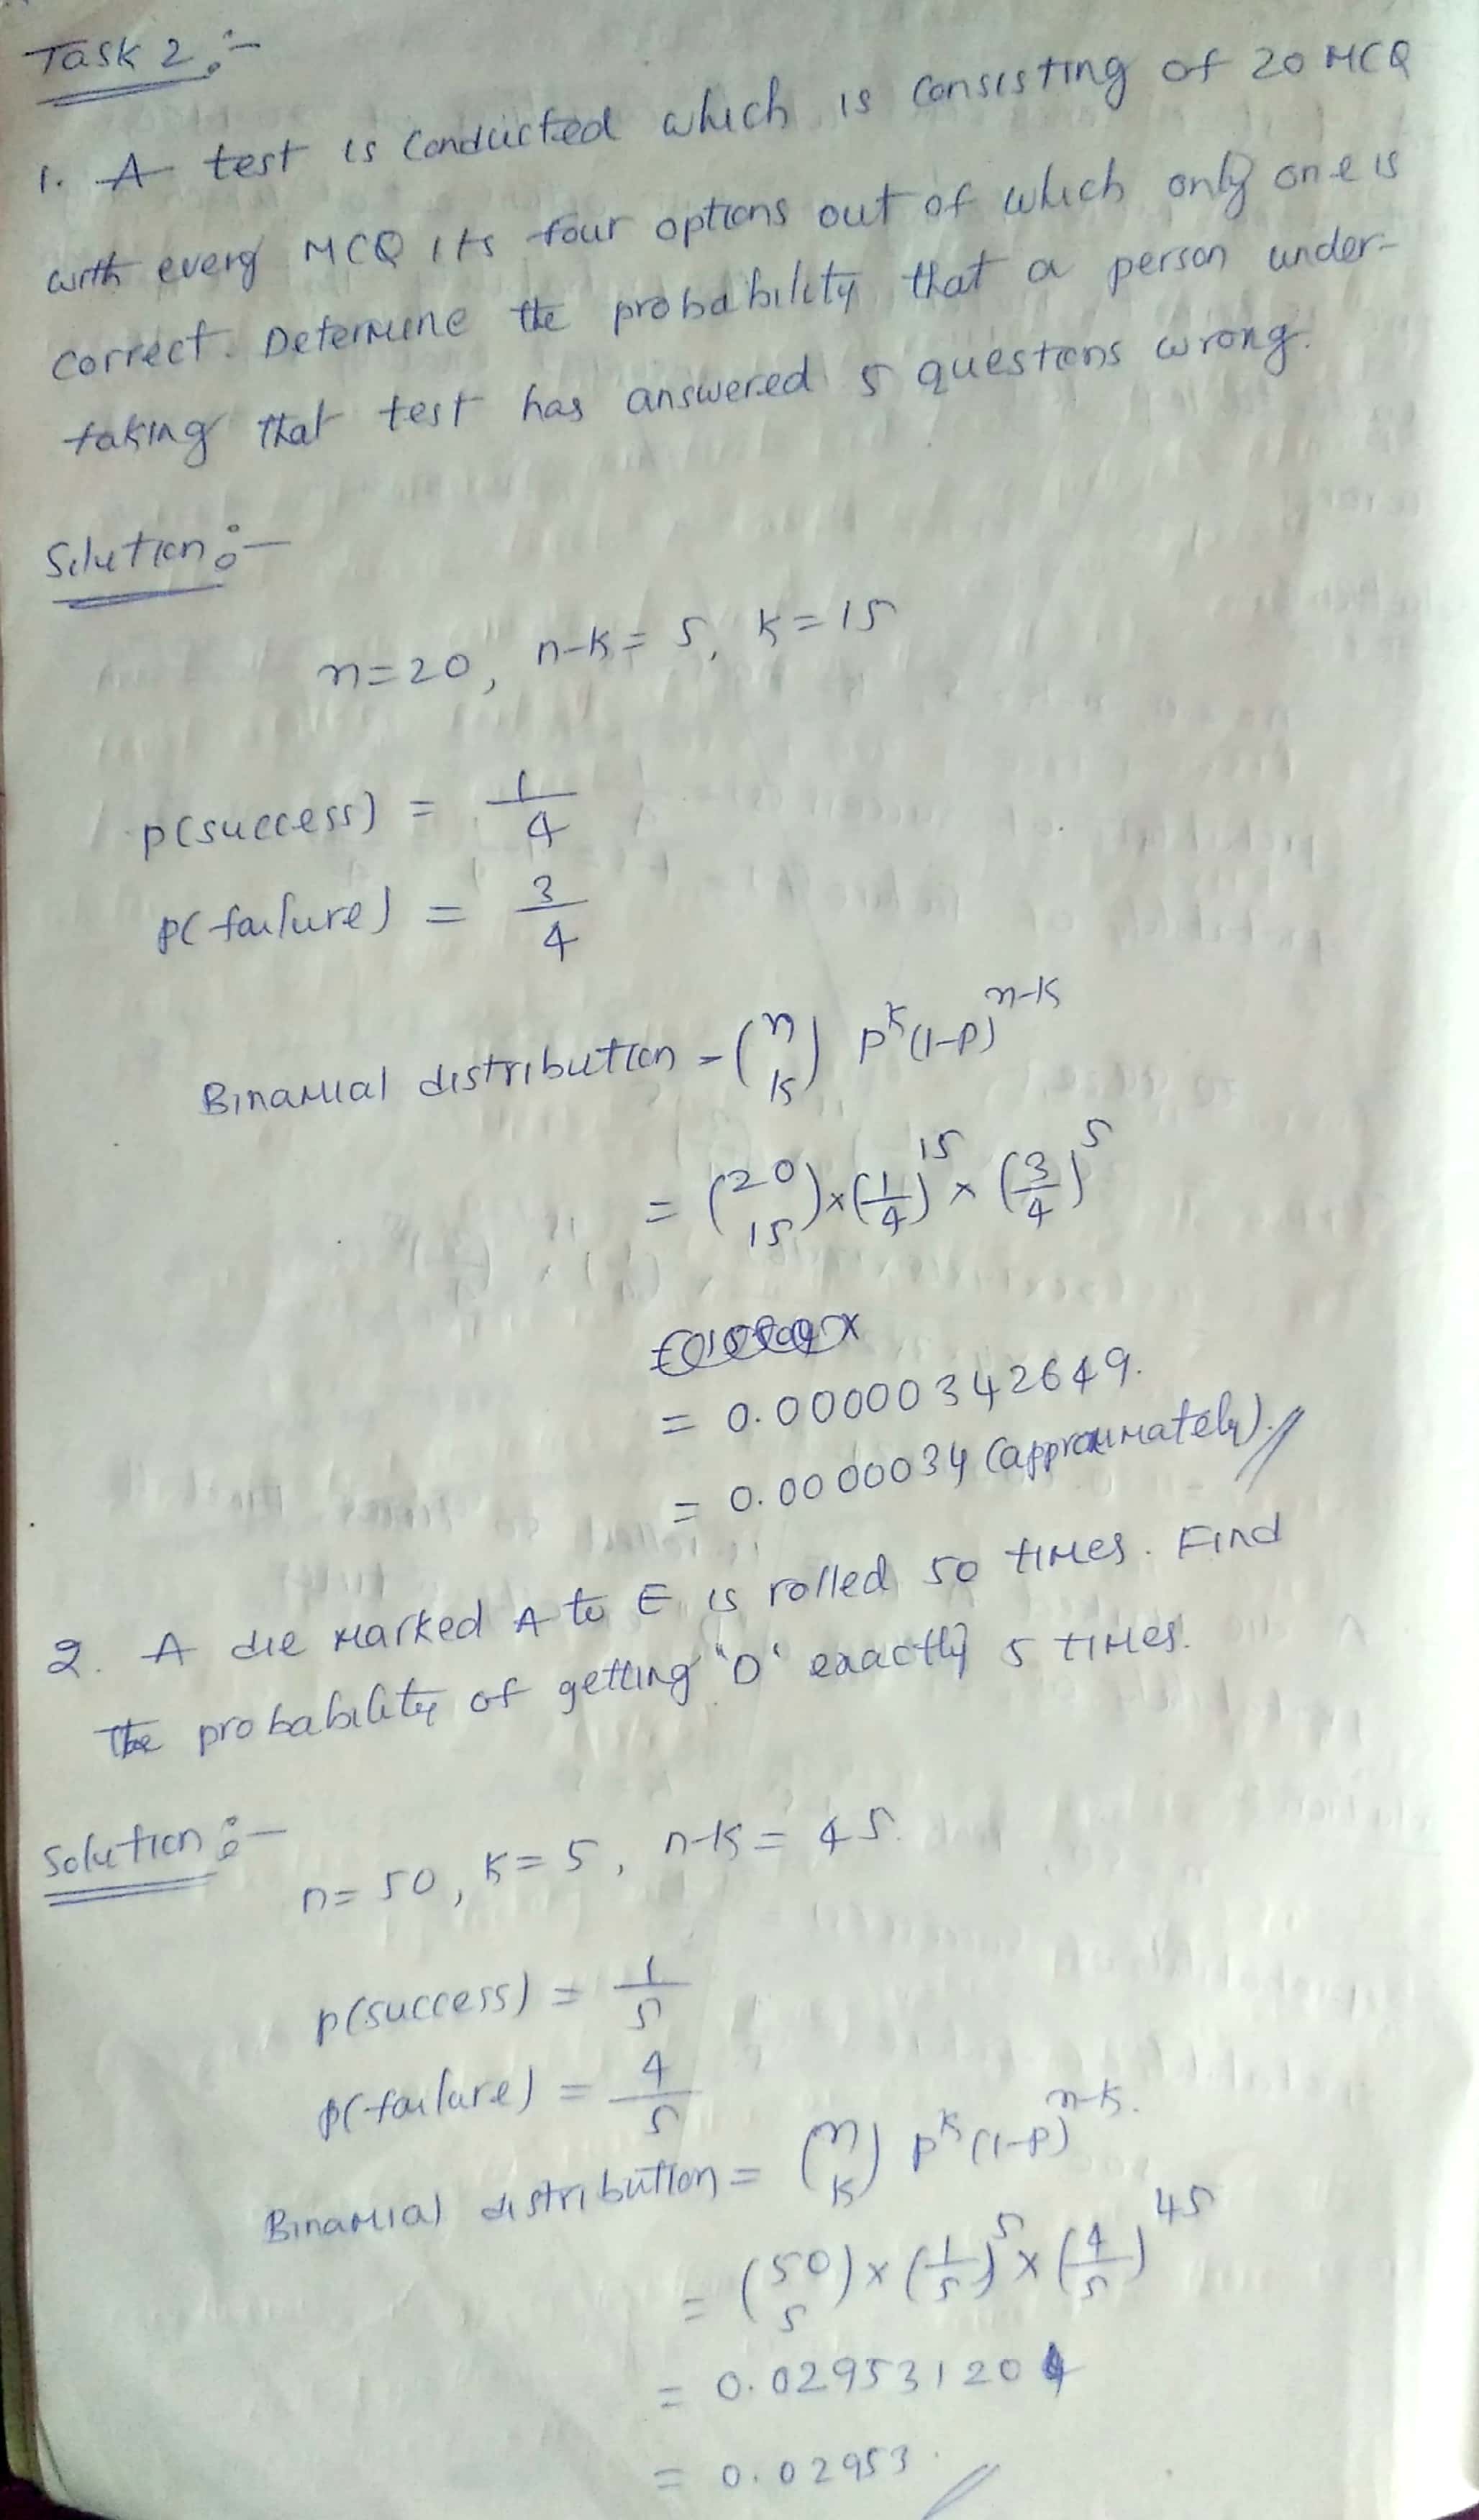 Task 2 :-
1. A test is conducted which is consisting of 20 MCQ
with every MCQ its four options out of which only one is
correct. Determine the probability that a person under-
taking that test has answered 5 questions wrong.
Solution :-
n=20, n-k= 5, k=15
p(success) = 1/4
p(failure) = 3/4
Binomial distribution = (n k) p^k (1-p)^n-k
= (20 15) × (1/4)^15 × (3/4)^5
= 0.00000342649.
= 0.0000034 (approximately).
2. A die marked A to E is rolled 50 times. Find
the probability of getting "D" exactly 5 times.
Solution :-
n= 50, k=5, n-k= 45.
p(success) = 1/5
p(failure) = 4/5
Binomial distribution = (n k) p^k (1-p)^n-k.
= (50 5) × (1/5)^5 × (4/5)^45
= 0.029531204
= 0.02953.